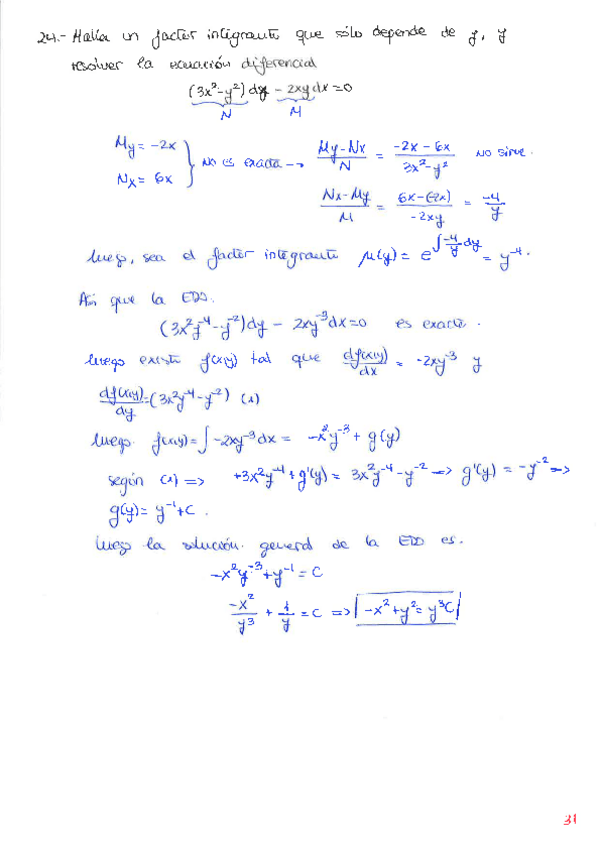 24.- Halla un factor integrante que sólo depende de y, y
resolver la ecuación diferencial
(3x²-y²) dy - 2xy dx = 0
N M
My = -2x
Nx = 6x
No es exacta → (My-Nx)/N = (-2x-6x)/(3x²-y²) No sirve.
(Nx-My)/M = (6x-(-2x))/(-2xy) = -4/y
luego, sea el factor integrante μ(y) = e^∫(-4/y)dy = y⁻⁴.
Así que la EDO.
(3x²y⁻⁴-y⁻²)dy - 2xy⁻³dx=0 es exacta.
luego existe f(x,y) tal que df(x,y)/dx = -2xy⁻³ y
df(x,y)/dy = (3x²y⁻⁴-y⁻²) (1)
luego. f(x,y) = ∫-2xy⁻³dx = -x²y⁻³ + g(y)
según (1) => +3x²y⁻⁴+g'(y) = 3x²y⁻⁴-y⁻² => g'(y) = -y⁻² =>
g(y) = y⁻¹+C.
luego la solución general de la EDO es.
-x²y⁻³+y⁻¹ = C
-x²/y³ + 1/y = C => -x²+y² = y³C
31